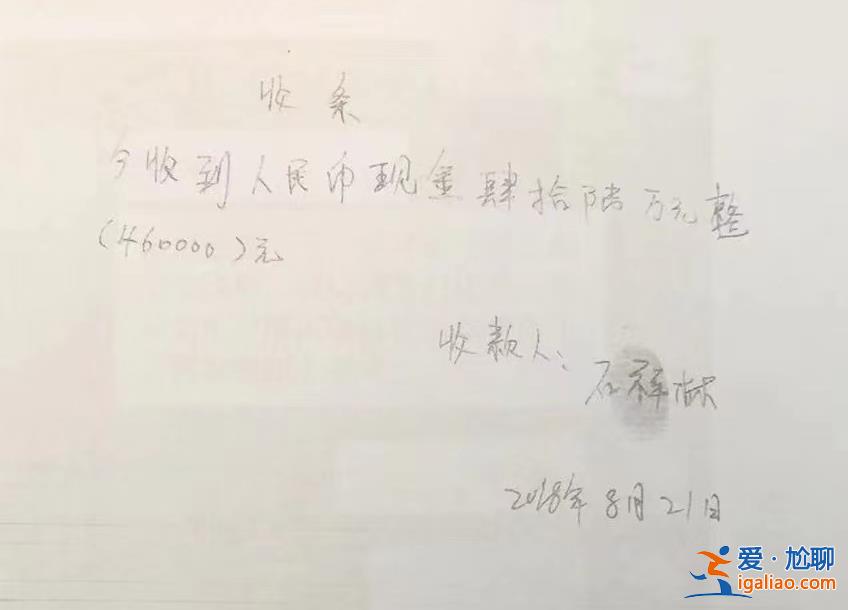 收条
今收到人民币现金肆拾陆万元整
(460000)元
收款人:
石祥林
2018年8月21日
爱·尬聊
igaliao.com